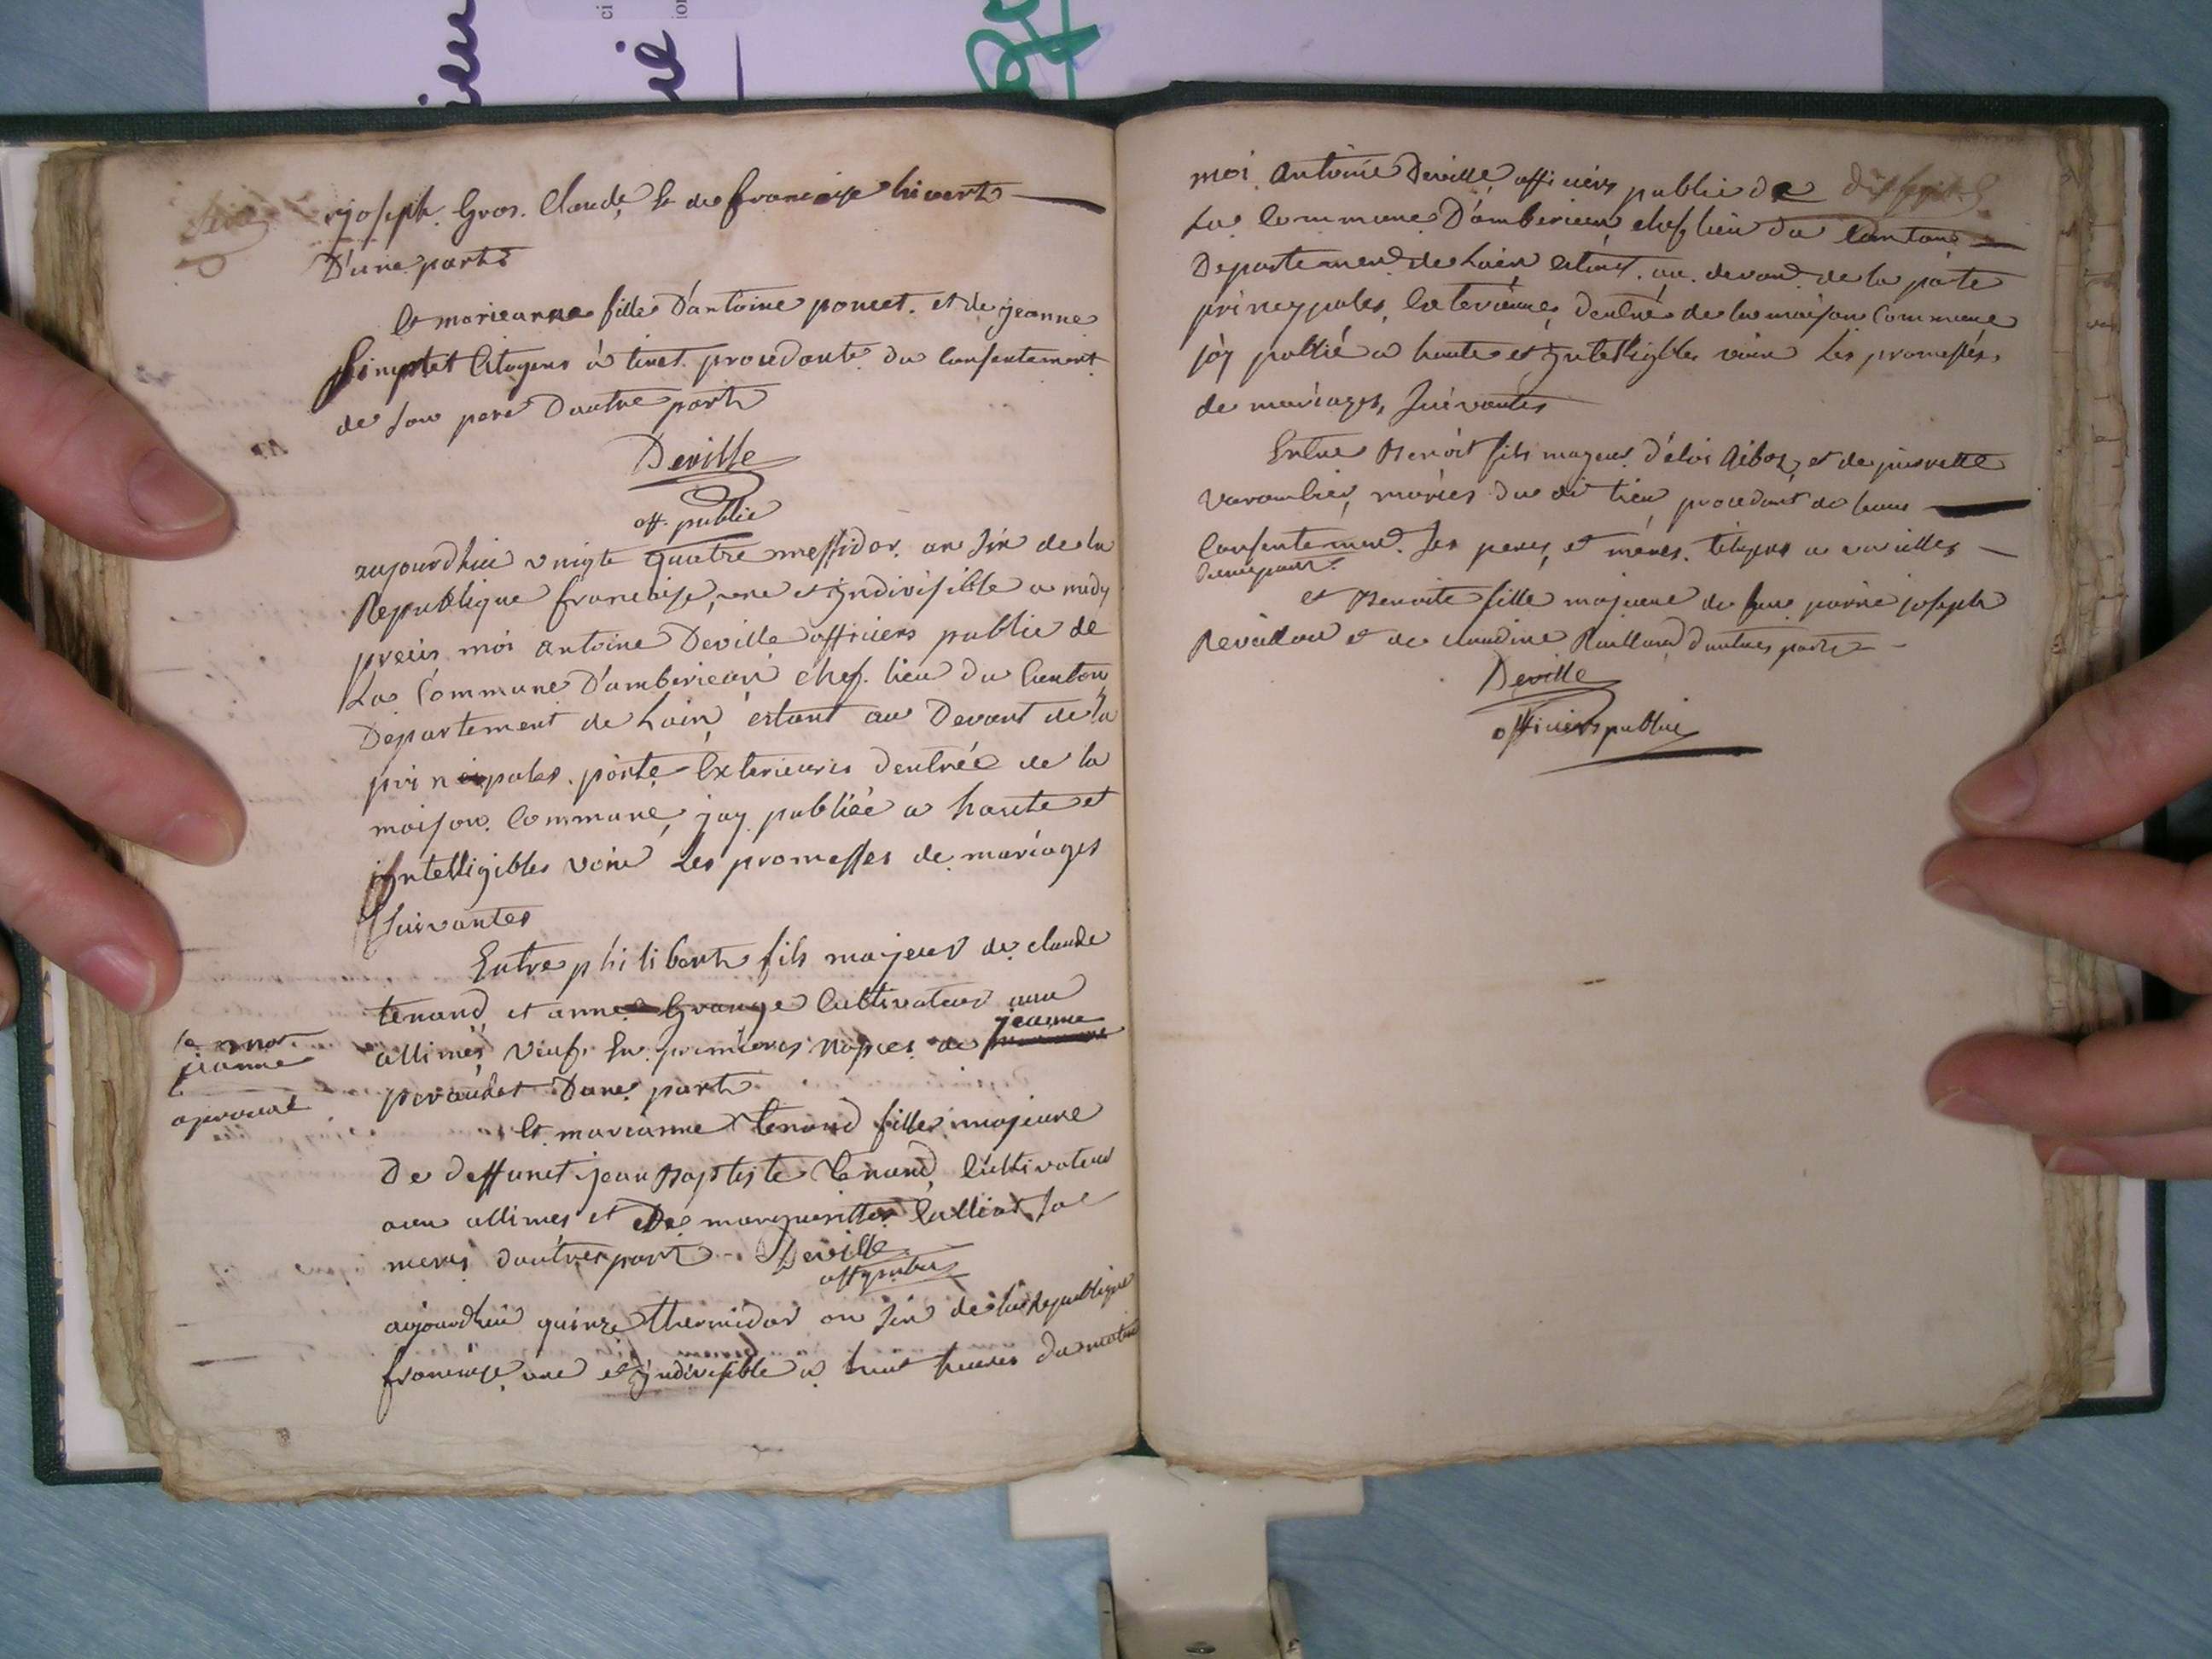 joseph Gros. Claude, & de francoise hivert
D'une part
Et marieanne fille D'antoine poncet. et de jeanne
Simplet Citoyens à tiret procedante du Consentement
de son pere D'autre part
Deville
off. public
aujourdhui vingte quatre messidor an six de la
Republique francaise, une et yndivisible a midy
precis moi antoine Deville officiers public de
La Commune D'amberieux chef. lieu du Canton
Departement de Lain, estant au Devant de la
principales porte Exterieures dentrée de la
maison Commune, jay publiée a haute et
yntelligibles voix Les promesses de mariages
Suivantes
Entre philibert fils majeur de claude
tenand et anne Grange Cultivateur aux
allimes, veuf. En premieres nopces de jeanne
peraudet Dune part
le mot
jeanne
aprouvé
Et marianne tenand fille majeure
De deffunct jean Baptiste tenand, Cultivateur
aux allimes et De margueritte Sa
meres dautres part Deville
off public
aujourdhui quinze thermidor an six de la Republique
francaise, une et yndivisible a huit heures du matin
moi Antoine Deville officiers public de
La Commune D'amberieux chef lieu du Canton
Departement de Lain estant au devant de la porte
princypales, Exterieures, dentré de la maison Commune
jay publié a haute et yntelligibles voix Les promesses
de mariages, Suivantes
Entre Benoit fils majeur d'eloi et de pierrette
Varambier, mariés du dit lieu procedant de leurs
Consentement. Ses peres et meres. Citoyens a vareilles
dune part
et Benoite fille majeure de feu joseph
et de claudine d'autres parts
Deville
officiers public